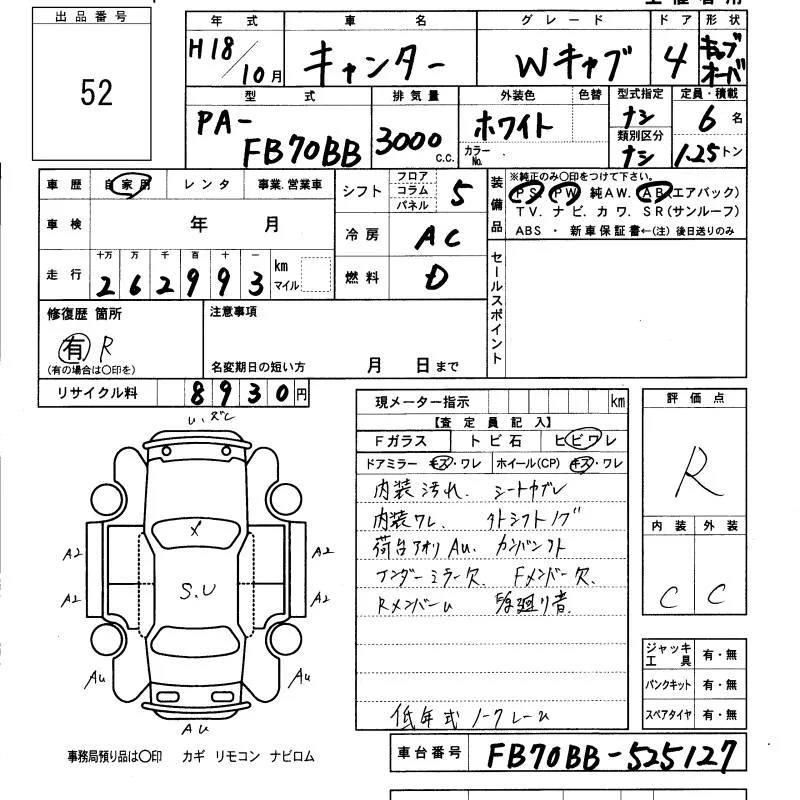 出品番号
52
年式
H18/10月
車名
キャンター
グレード
Wキャブ
ドア
4
形状
キャブオーバ
型式
PA-
FB70BB
排気量
3000 c.c.
外装色
色替
ホワイト
カラーNo.
型式指定
ナシ
類別区分
ナシ
定員・積載
6 名
1.25 トン
車歴
自家用
レンタ
事業、営業車
車検
年 月
走行
十万 万 千 百 十 一
2 6 2 9 9 3
km
マイル
シフト
フロア
コラム
パネル
5
冷房
AC
燃料
D
装備品
※純正のみ○印をつけて下さい。
PS. PW. 純AW. AB(エアバック)
TV. ナビ. カワ. SR(サンルーフ)
ABS ・ 新車保証書←(注)後日送りのみ
セールスポイント
修復歴 箇所
有 R
(有の場合は○印を)
注意事項
名変期日の短い方 月 日まで
リサイクル料
8930円
現メーター指示
km
【査定員記入】
Fガラス
トビ石
ヒビワレ
ドアミラー キズ・ワレ
ホイール(CP) キズ・ワレ
内装汚れ.
内装ワレ.
荷台アオリAU.
アンダーミラー欠. Fメンバー欠.
低年式 ノークレーム
評価点
R
内装
外装
C
C
ジャッキ工具
有・無
パンクキット
有・無
スペアタイヤ
有・無
X
S.U
A2
A2
A2
A2
AU
AU
AU
事務局預り品は○印 カギ リモコン ナビロム
車台番号
FB70BB-525127